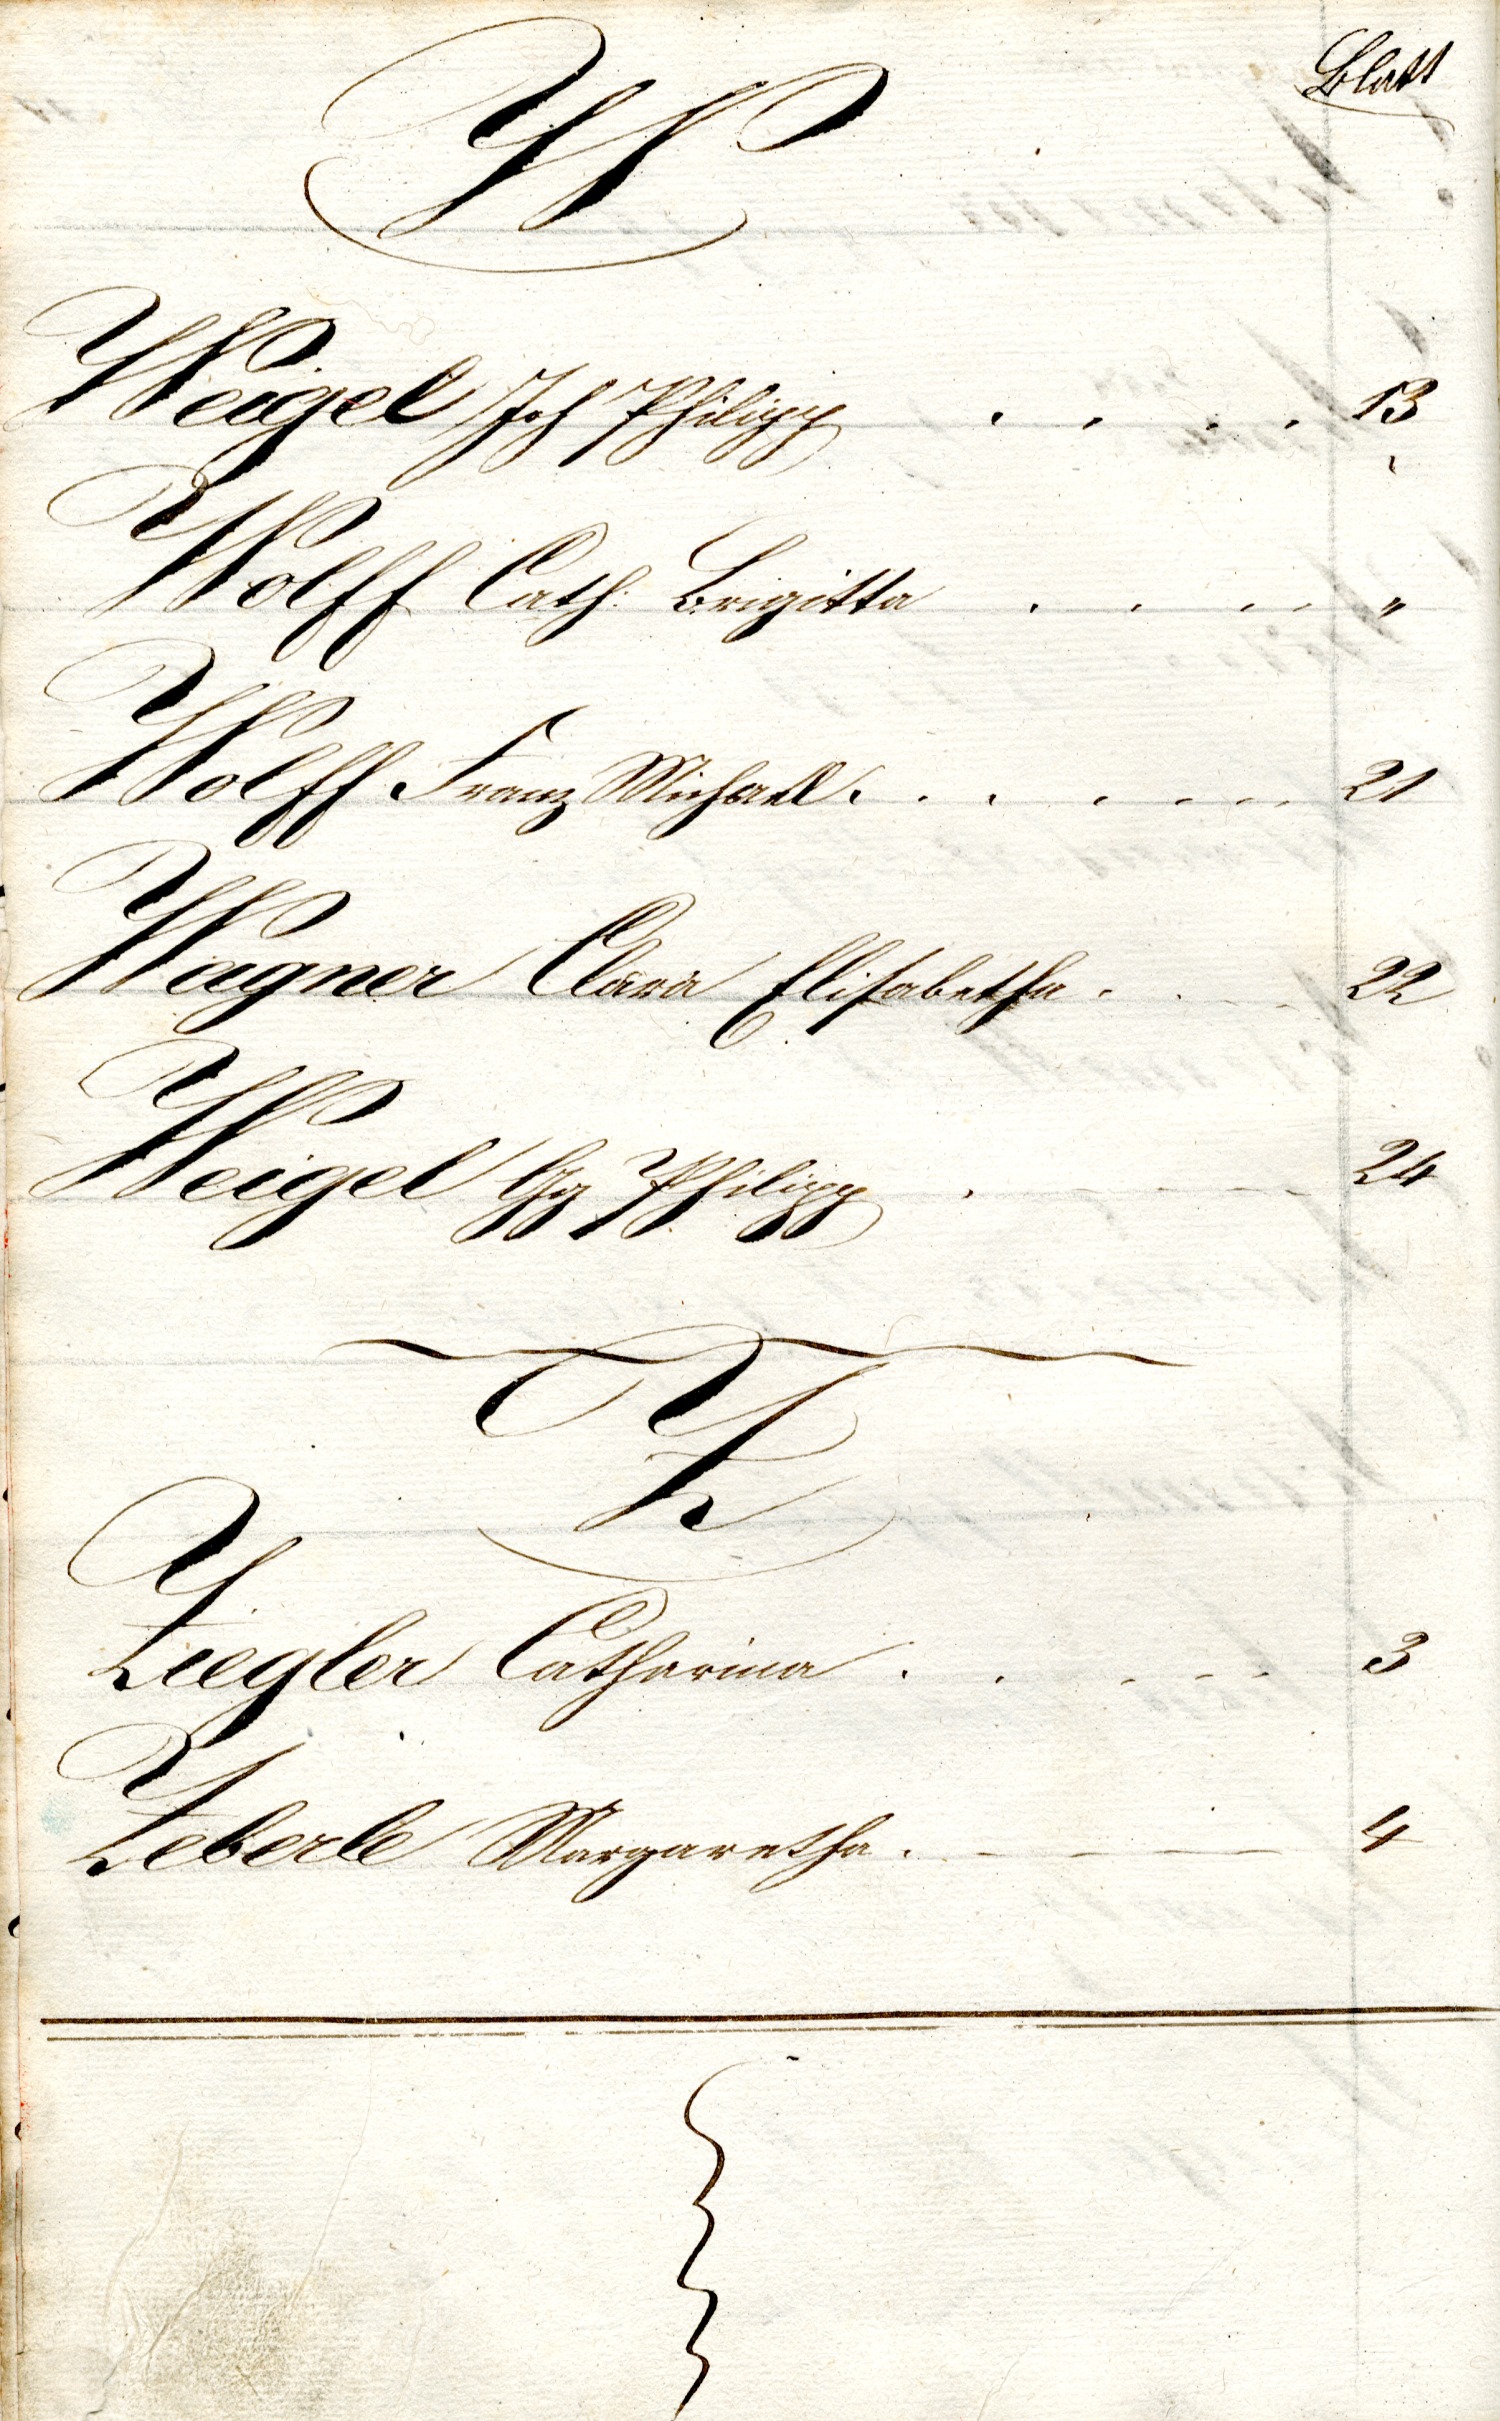 Blatt
W
Weigel Joh Philipp . . . . 13
Wolff Cath: Brigitta . . . . "
Wolff Franz Michael . . . . . . . 21
Wagner Clara Elisabetha . . . . 22
Weigel Gg Philipp . - - - - 24
Z
Ziegler Catharina . . . . . 3
Zeberle Margaretha . - - - - 4